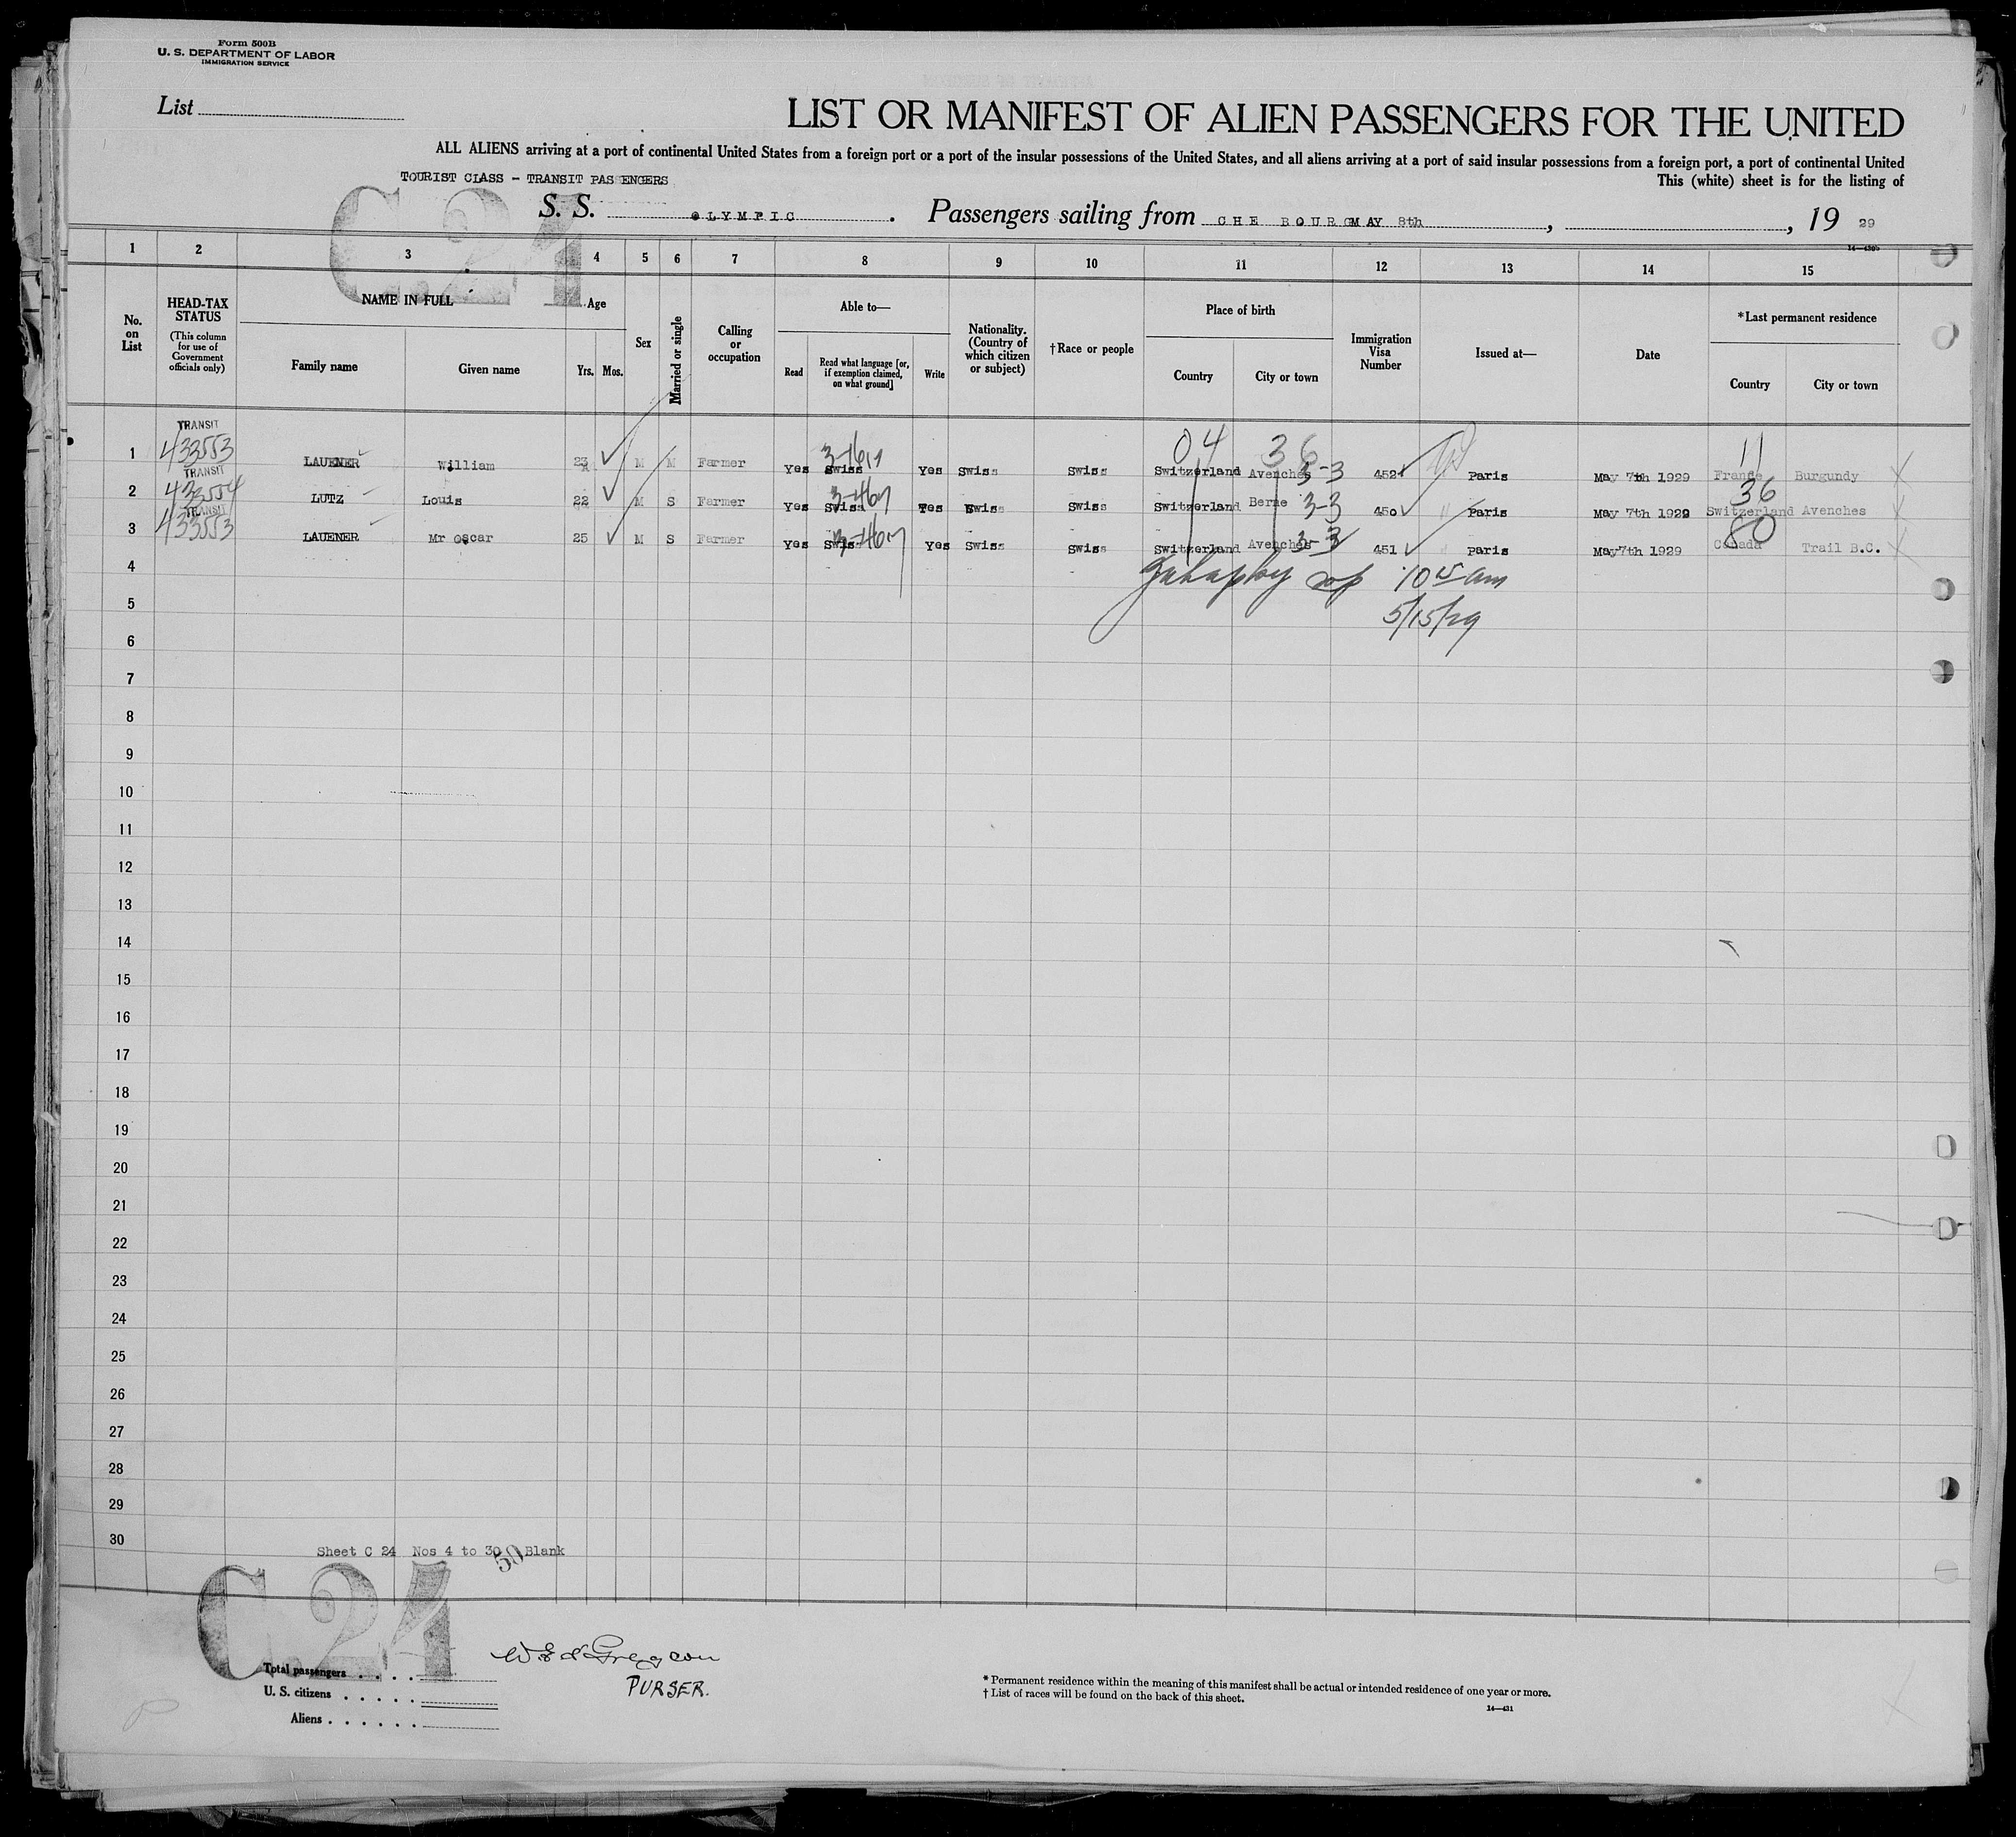 Form 500B
U. S. DEPARTMENT OF LABOR
IMMIGRATION SERVICE
List
LIST OR MANIFEST OF ALIEN PASSENGERS FOR THE UNITED
ALL ALIENS arriving at a port of continental United States from a foreign port or a port of the insular possessions of the United States, and all aliens arriving at a port of said insular possessions from a foreign port, a port of continental United
TOURIST CLASS - TRANSIT PAS ENGERS
This (white) sheet is for the listing of
C.24
S. S. OLYMPIC. Passengers sailing from CHE BOURG MAY 8th, , 19 29
14—430b
1 2 3 4 5 6 7 8 9 10 11 12 13 14 15
No. on List
HEAD-TAX STATUS
(This column for use of Government officials only)
NAME IN FULL
Family name
Given name
Age
Yrs. Mos.
Sex
Married or single
Calling or occupation
Able to—
Read
Read what language [or, if exemption claimed, on what ground]
Write
Nationality. (Country of which citizen or subject)
†Race or people
Place of birth
Country
City or town
Immigration Visa Number
Issued at—
Date
*Last permanent residence
Country
City or town
1 TRANSIT 433553 LAUENER William 23 M M Farmer Yes Swiss Yes Swiss Swiss 04 Switzerland 36 Avenches 3-3 452 Paris May 7th 1929 11 France Burgundy
2 TRANSIT 433554 LUTZ Louis 22 M S Farmer Yes Swiss Yes Swiss Swiss Switzerland Berne 3-3 450 Paris May 7th 1929 36 Switzerland Avenches
3 TRANSIT 433553 LAUENER Mr Oscar 25 M S Farmer Yes Swiss Yes Swiss Swiss Switzerland Avenches 3-3 451 Paris May7th 1929 80 Canada Trail B.C.
4 10 15 am
5 5/15/29
6
7
8
9
10
11
12
13
14
15
16
17
18
19
20
21
22
23
24
25
26
27
28
29
30
Sheet C 24 Nos 4 to 30 Blank
50
C.24
Total passengers
U. S. citizens
Aliens
PURSER.
* Permanent residence within the meaning of this manifest shall be actual or intended residence of one year or more.
† List of races will be found on the back of this sheet.
14—431